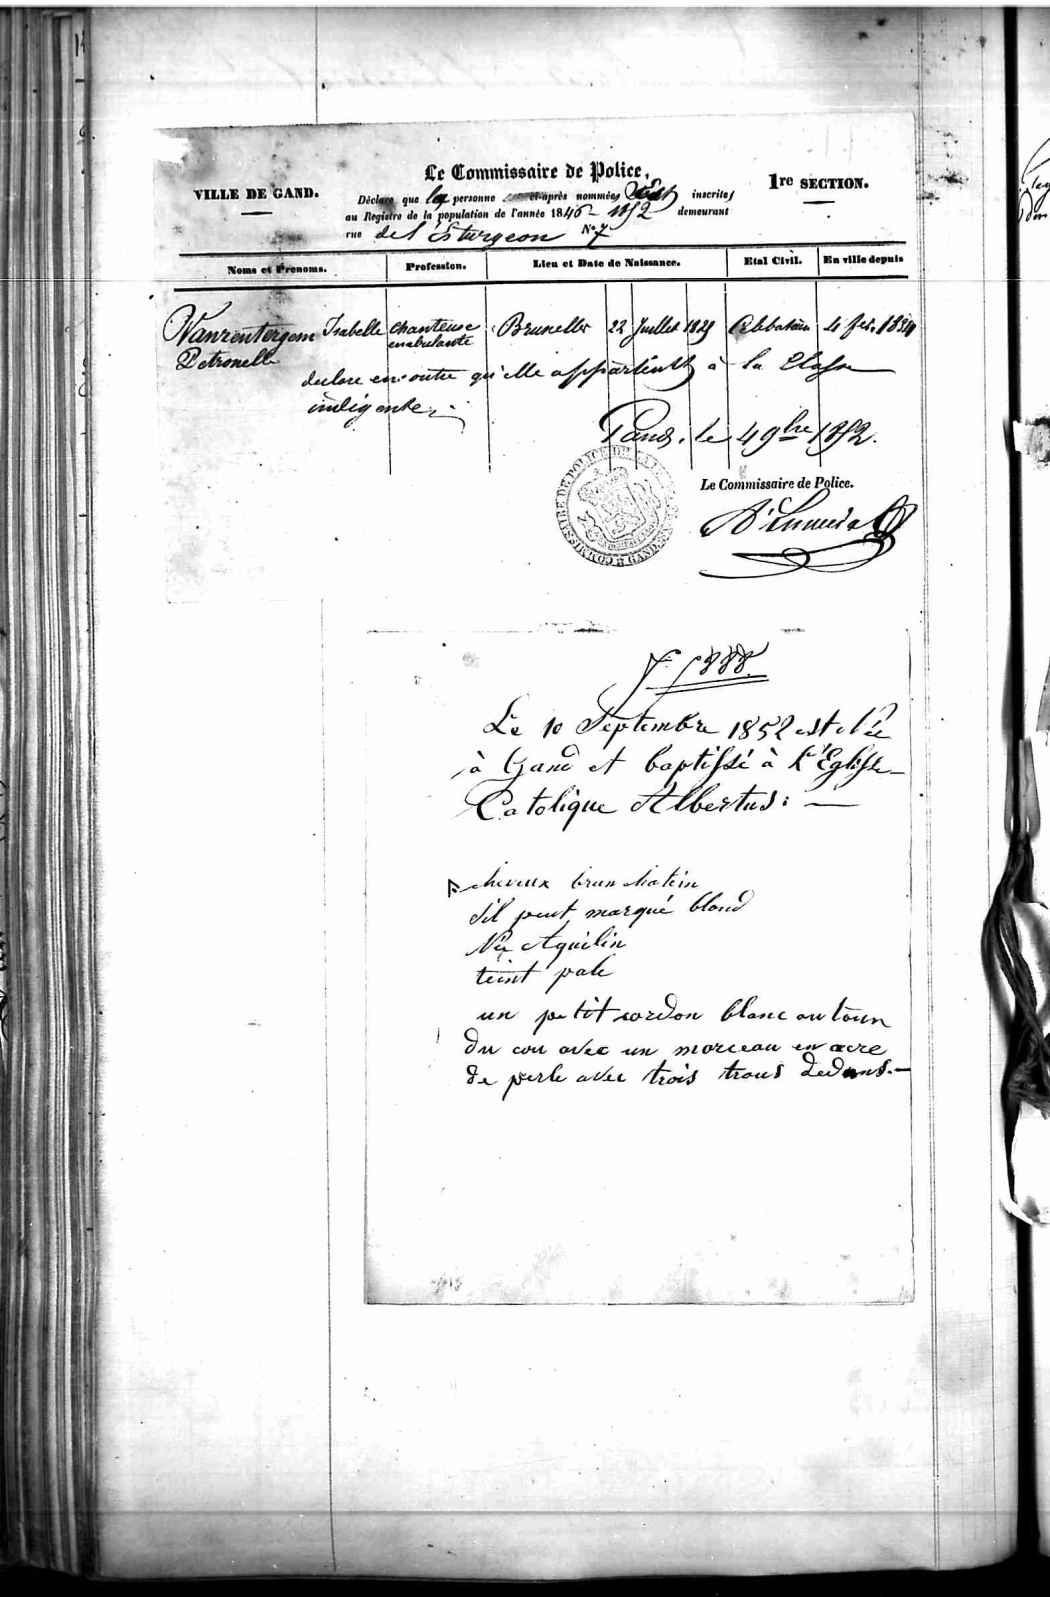 VILLE DE GAND.
Le Commissaire de Police,
1re SECTION.
Déclare que la personne ci-après nommée est inscrite
au Registre de la population de l'année 1846 - 1852 demeurant
rue de l'Esturgeon No 7
Noms et Prenoms. Profession. Lieu et Date de Naissance. Etat Civil. En ville depuis
Vanrentergem Isabelle chanteuse Bruxelles 22 Juillet 1829 Célibataire 4 fév.
Petronelle ambulante
declare en outre qu'elle appartient à la Classe
indigente.
Gand, le 4 9bre 1852.
Le Commissaire de Police.
COMMISSAIRE DE POLICE DE GAND
Le 10 Septembre 1852 est née
à Gand et baptissé à l'Eglisse
Catolique Albertus:
cheveux brun chatein
sil peut marqué blond
Nez Aquilin
teint pale
un petit cordon blanc au tour
du cou avec un morceau en acre
de perle avec trois trous dedans.